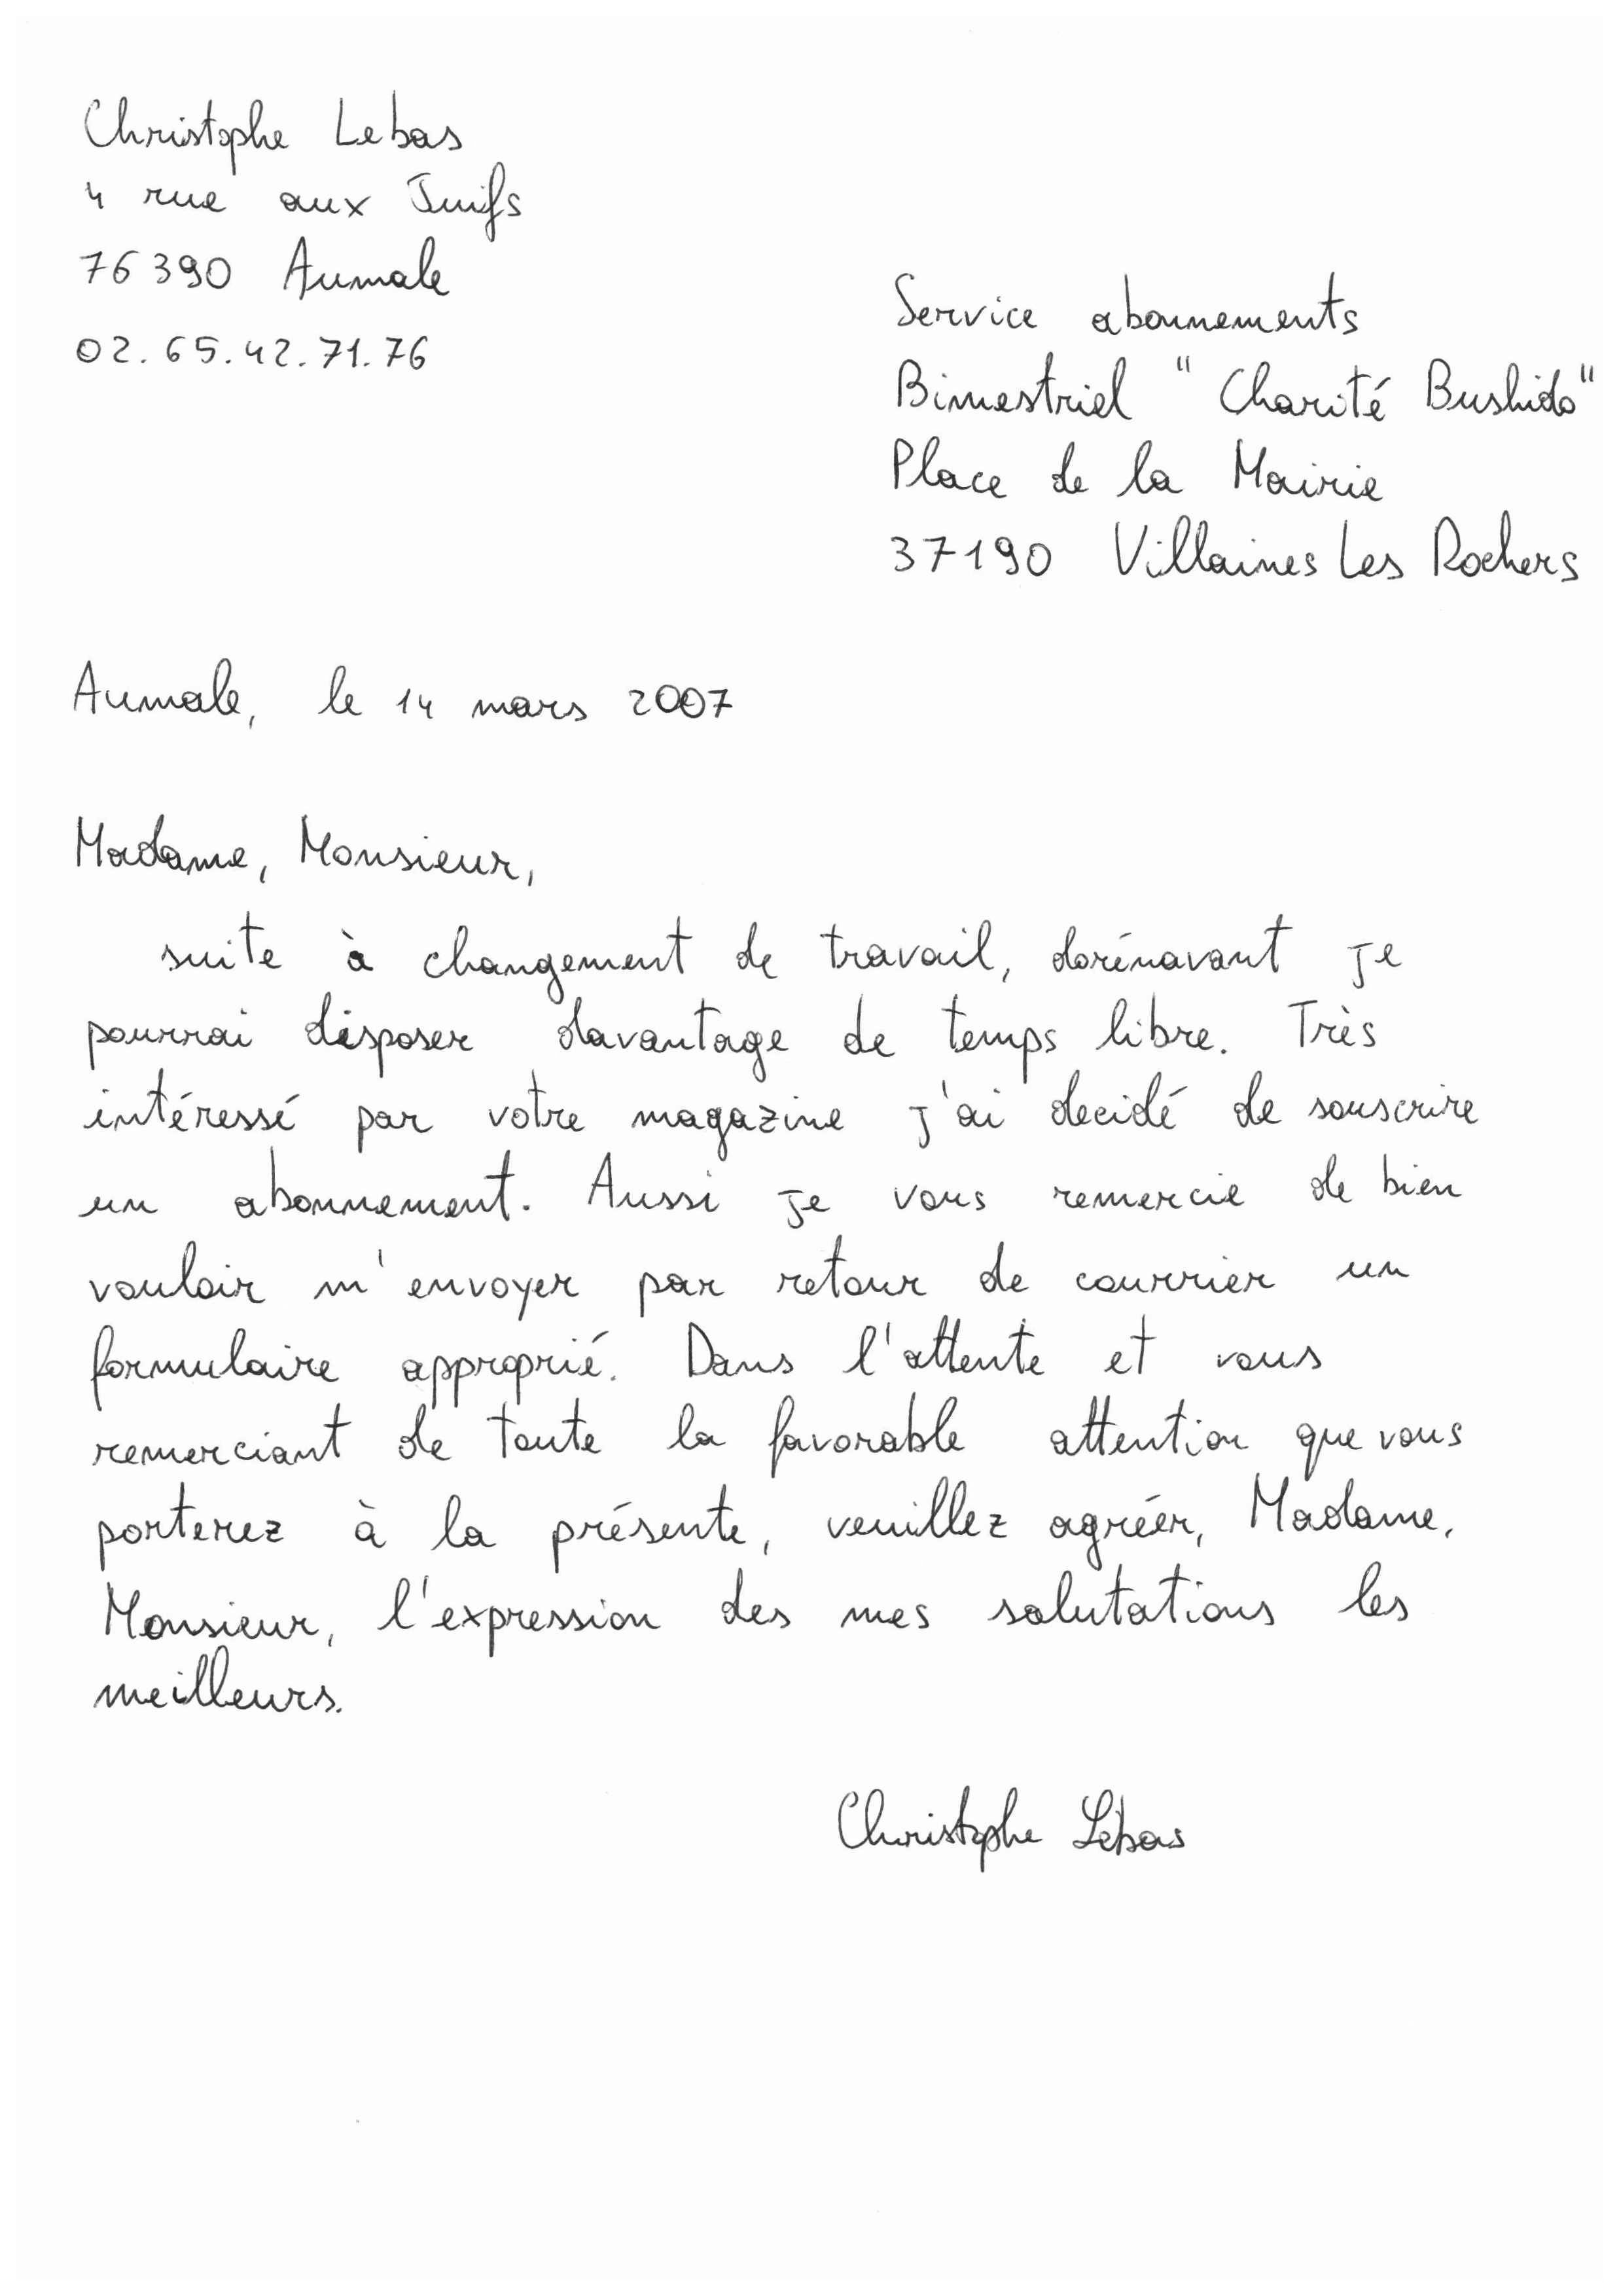 Christophe Lebas
4 rue aux Juifs
76390 Aumale
02.65.42.71.76
Service abonnements
Bimestriel "Charité Bushido"
Place de la Mairie
37190 Villaines Les Rochers
Aumale, le 14 mars 2007
Madame, Monsieur,
suite à changement de travail, dorénavant je
pourrai disposer davantage de temps libre. Très
intéressé par votre magazine j'ai decidé de souscrire
un abonnement. Aussi je vous remercie de bien
vouloir m'envoyer par retour de courrier un
formulaire approprié. Dans l'attente et vous
remerciant de toute la favorable attention que vous
porterez à la présente, veuillez agréer, Madame,
Monsieur, l'expression des mes salutations les
meilleurs.
Christophe Lebas